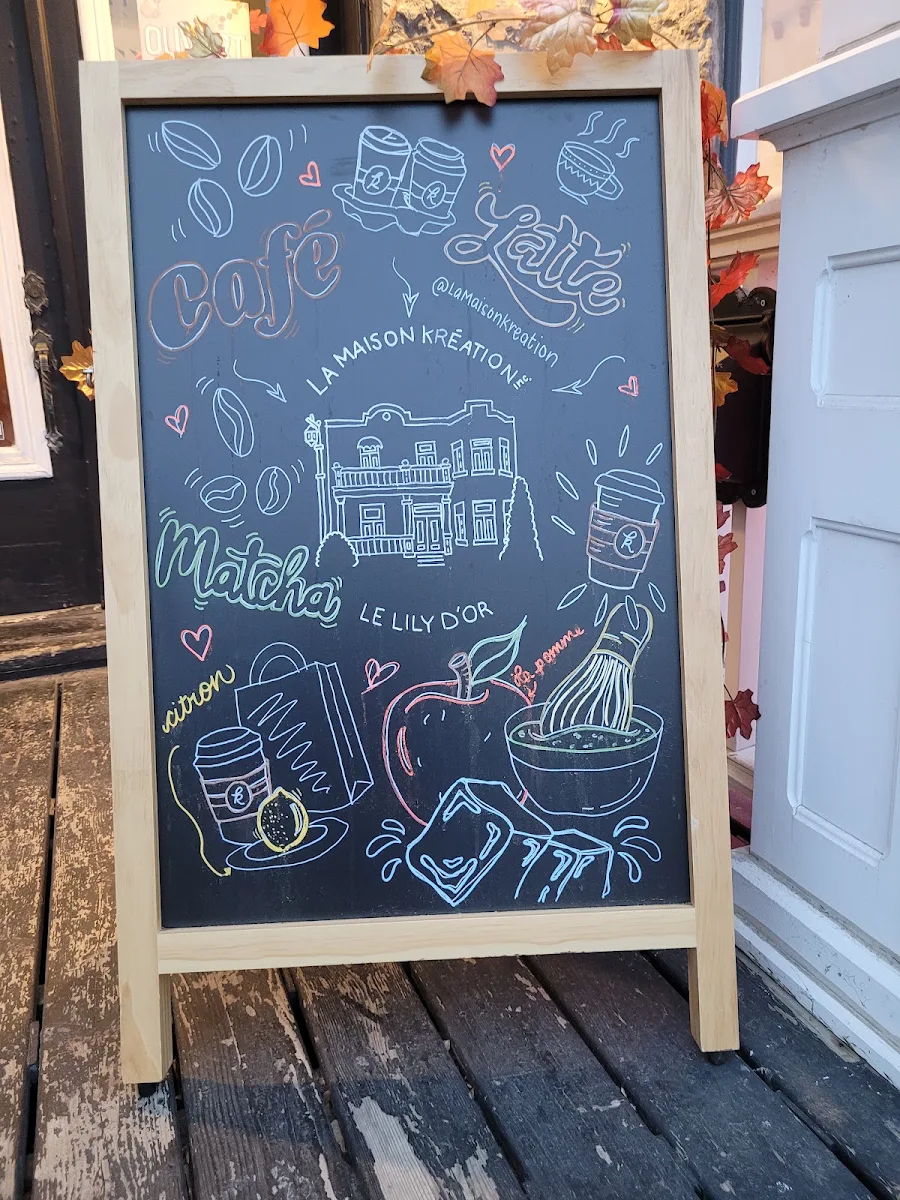 Café
Latte
@LaMaisonkreation
LA MAISON KRÉATIONÉ
Matcha
LE LILY D'OR
citron
La pomme
k
k
k
k